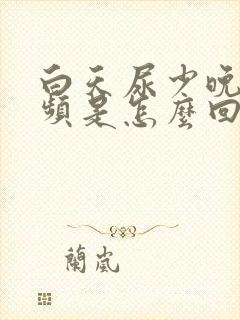 白天尿少晚
頻是怎麼回
蘭嵐